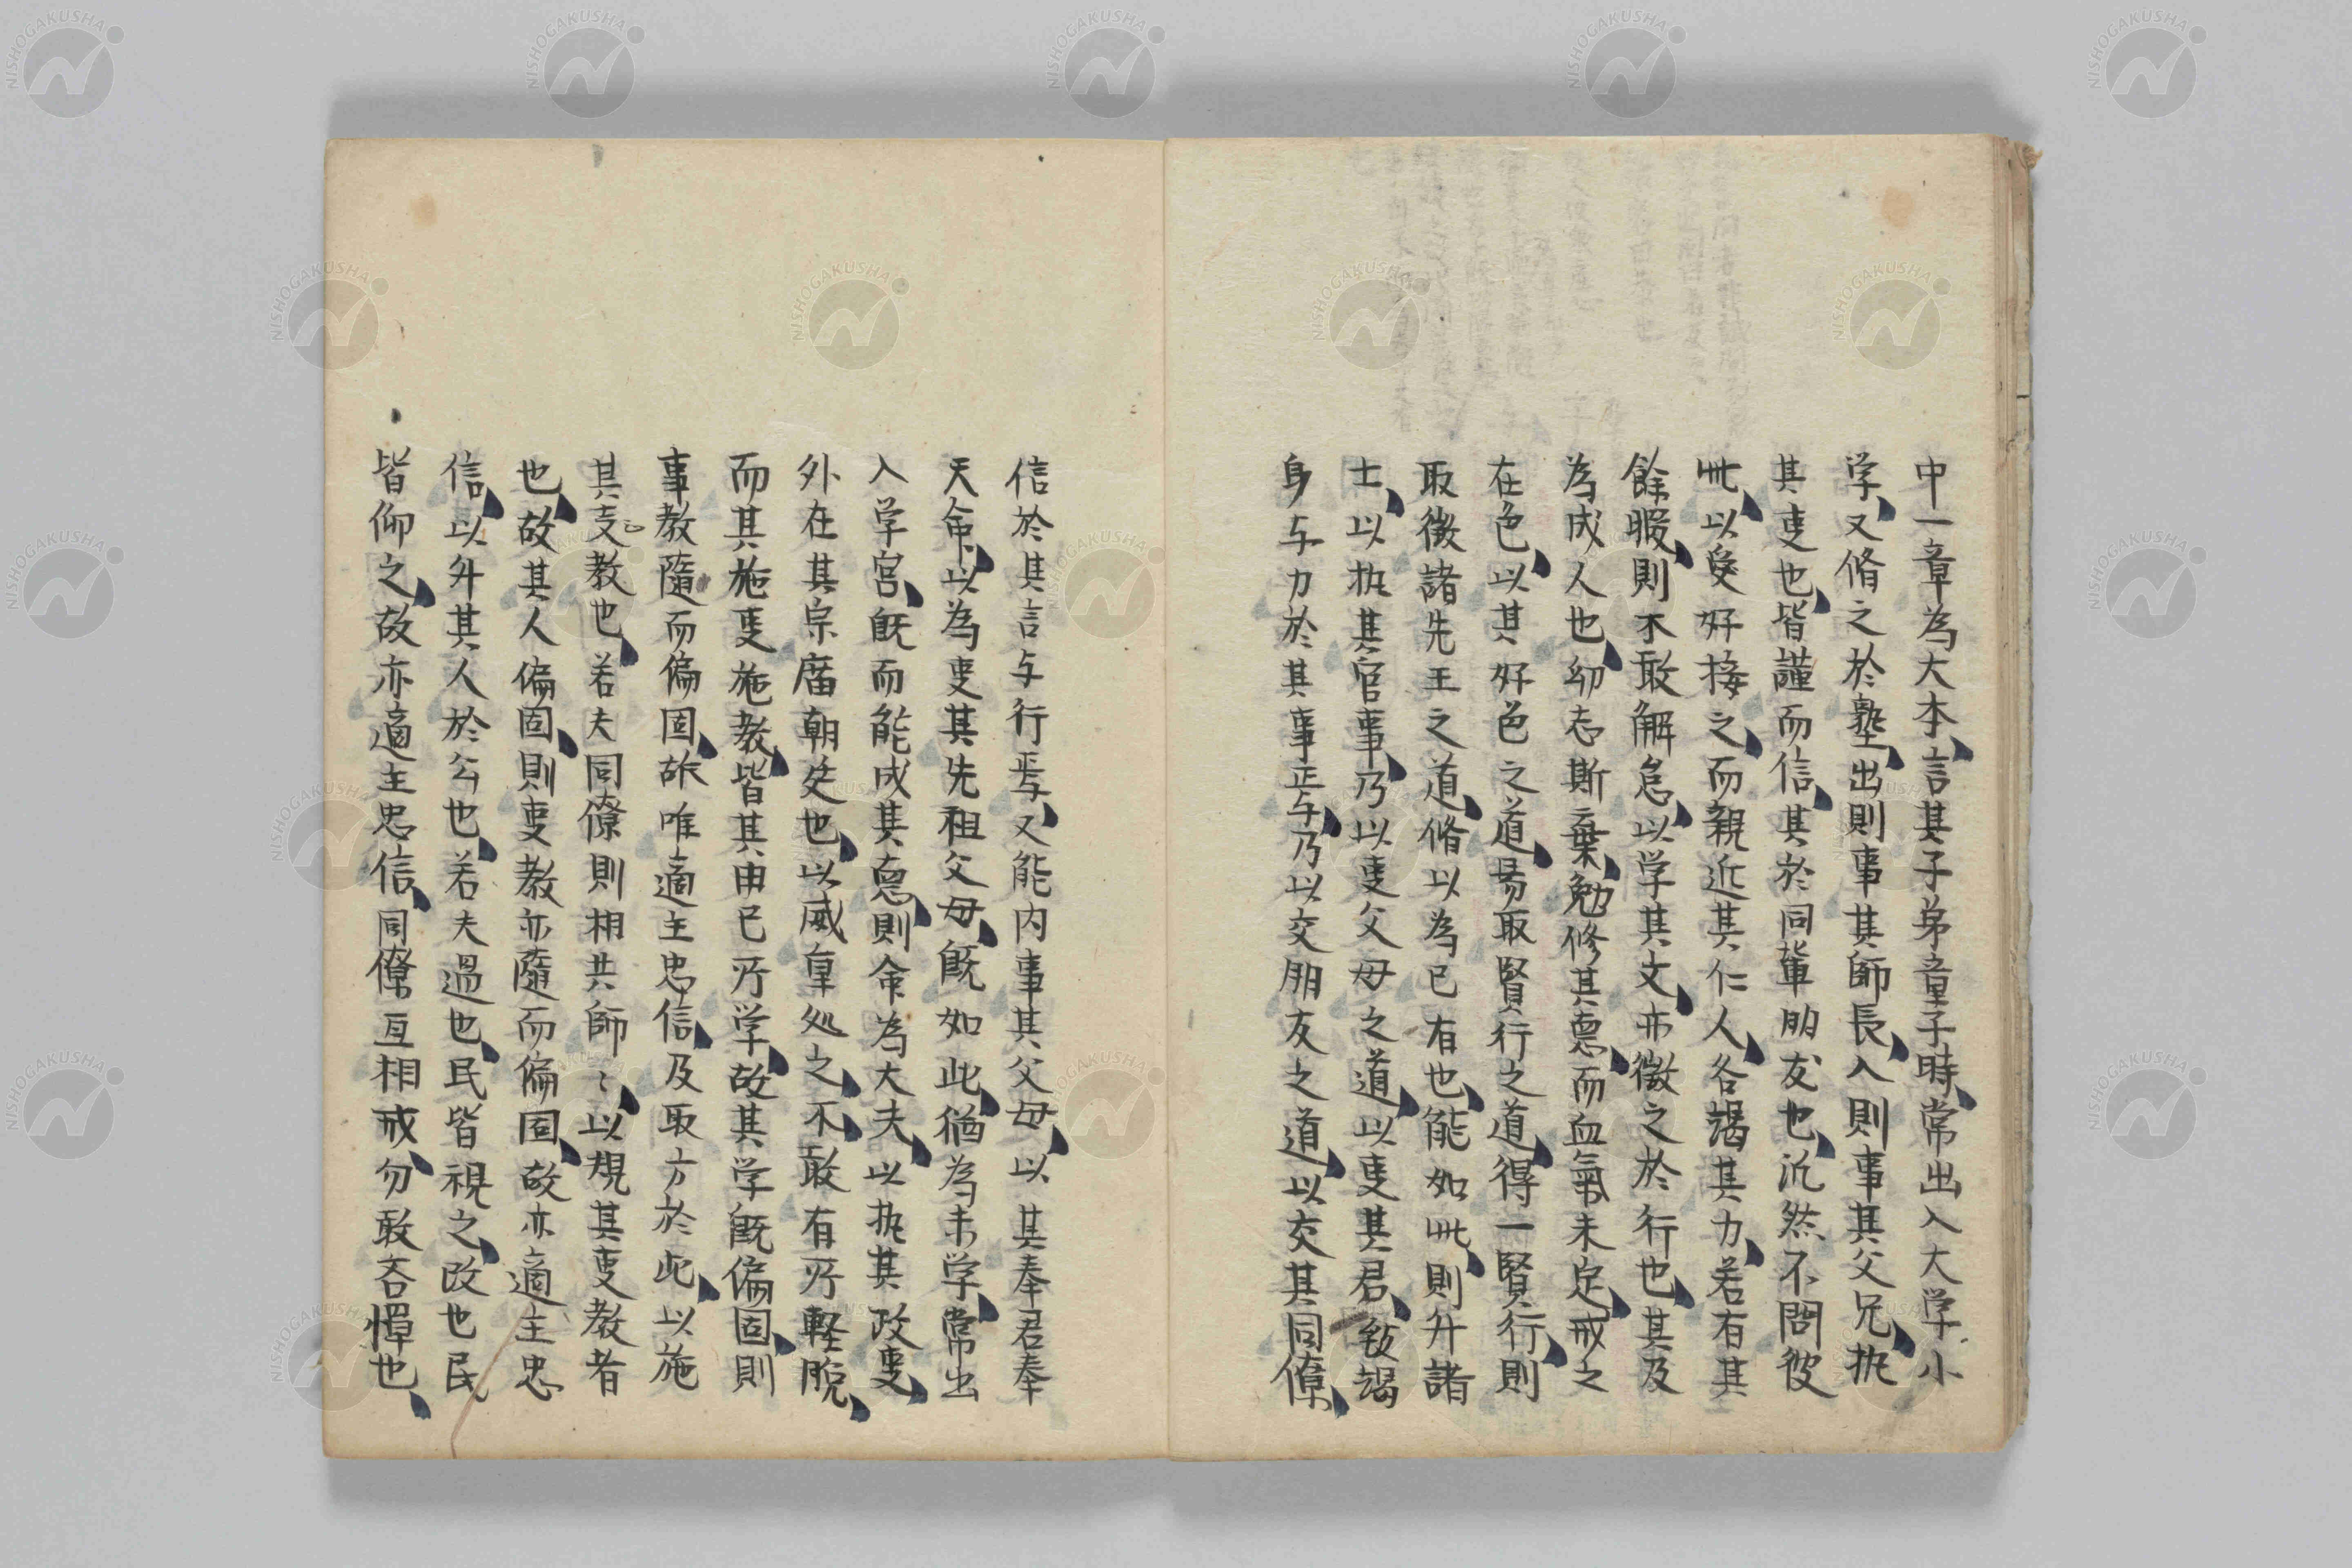 中一章為大本、言其子弟童子時、常出入大学小
学、又脩之於塾、出則事其師長、入則事其父兄、執
其事也、皆謹而信、其於同輩朋友也、汎然不問彼
此、以愛好接之、而親近其仁人、各竭其力、若有其
餘暇、則不敢解怠、以学其文、亦徴之於行也、其及
為成人也、幼志斯棄、勉修其悳、而血氣未定、戒之
在色、以其好色之道、易取賢行之道、得一賢行、則
取徴諸先王之道、脩以為己有也、能如此、則升諸
士、以执其官事、乃以事父母之道、以事其君、致竭
身与力於其事焉、乃以交朋友之道、以交其同僚、
信於其言与行焉、又能内事其父母、以其奉君奉
天命、以為事其先祖父母、既如此、猶為未学、常出
入学宮、既而能成其悳、則命為大夫、以执其政事、
外在其宗庿朝廷也、以威重処之、不敢有所軽脱、
而其施事施教、皆其由己所学、故其学既偏固、則
事教隨而偏固、故唯適主忠信、及取方於此、以施
其事教也、若夫同僚則相共師〻、以規其事教者
也、故其人偏固、則事教亦隨而偏固、故亦適主忠
信、以升其人於公也、若夫過也、民皆視之、改也民
皆仰之、故亦適主忠信、同僚互相戒、勿敢吝憚也、
NISHOGAKUSHA